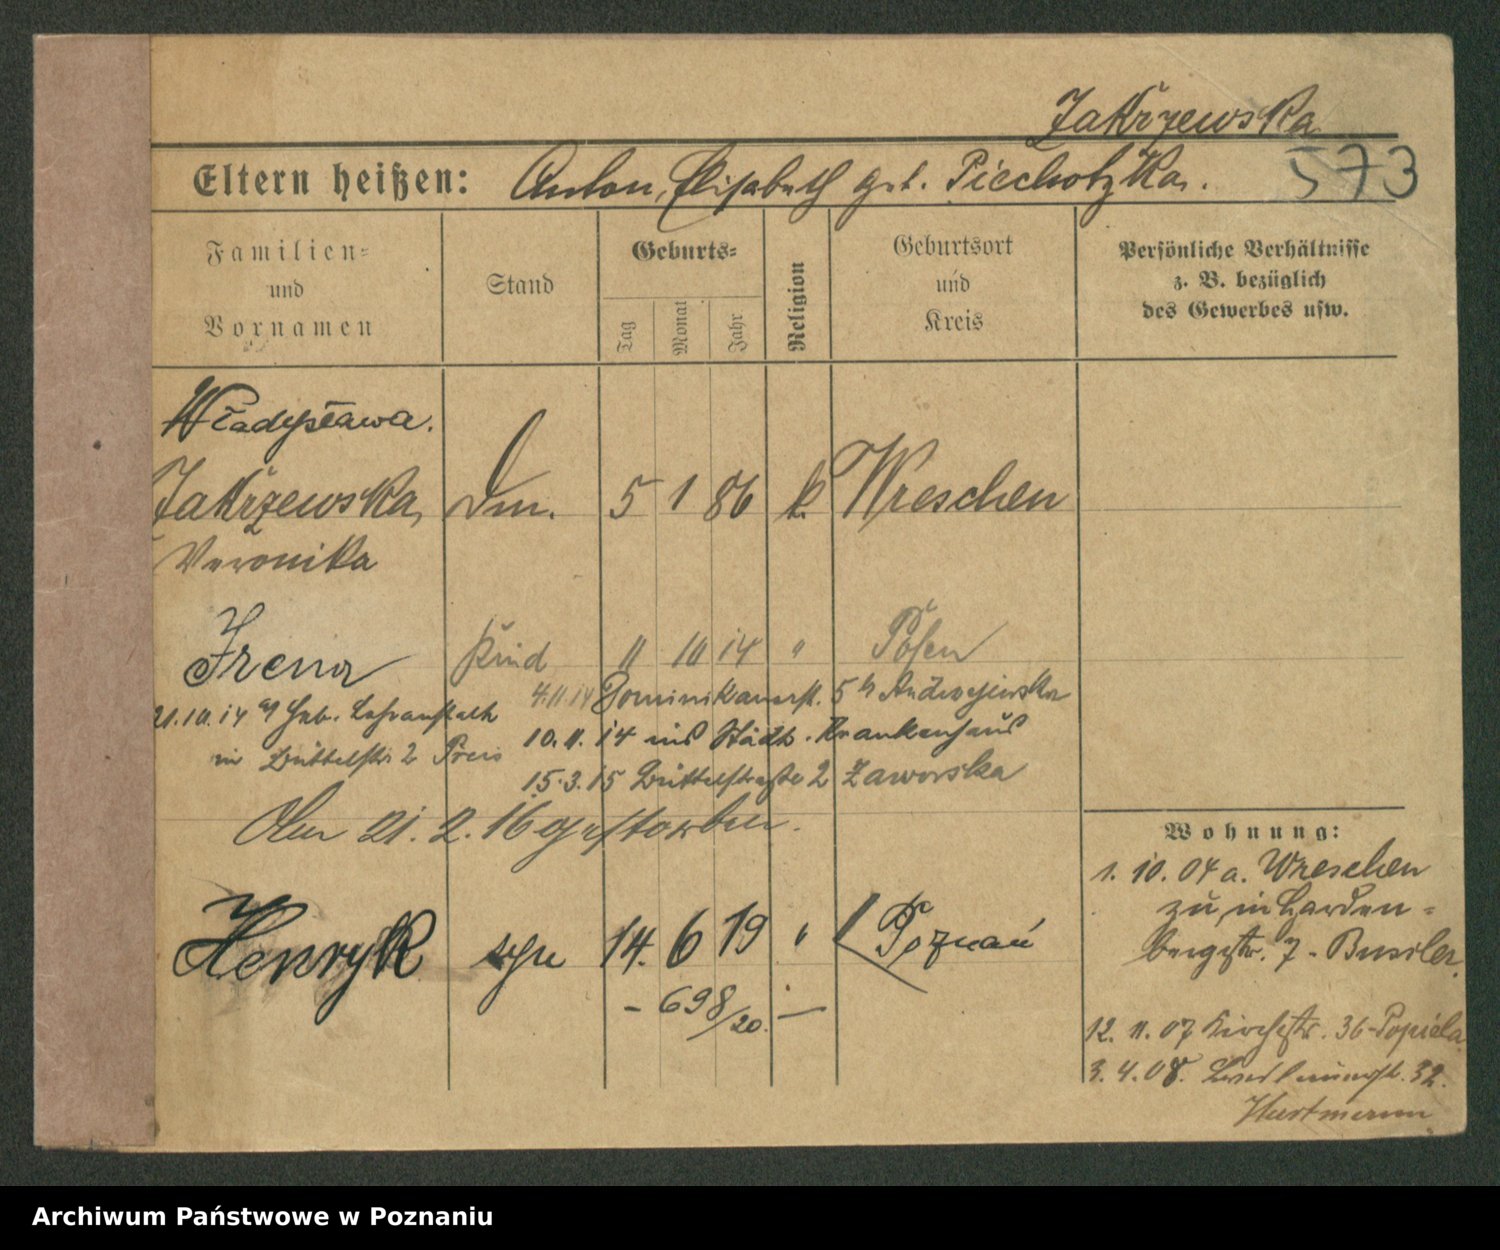 Zakrzewska
573
Eltern heißen: Anton, Elisabeth geb. Piechotzka.
Familien- und Vornamen
Stand
Geburts-
Tag
Monat
Jahr
Religion
Geburtsort und Kreis
Persönliche Verhältnisse z. B. bezüglich des Gewerbes usw.
Władysława.
Zakrzewska, Dm. 5 1 86 k. Wreschen
Veronika
Irena Kind 11 10 14 " Posen
4.11.14 Dominikanerstr. 5 b/ Andrzejewska
21.10.14 Heb. Lehranstalt
10.11.14 ins Städt. Krankenhaus
in Büttelstr. 2
15.3.15 Büttelstraße 2 Zaworska
Am 21.2.16 gestorben.
Henryk 14. 6 19 " Poznań
- 698/20. -
Wohnung:
1. 10. 04 a. Wreschen
zu, in Harden-
bergstr. 7 -
12. 11. 07 Kirchstr. 36 - Popiela
3. 4. 08. 32.
Hartmann
Archiwum Państwowe w Poznaniu